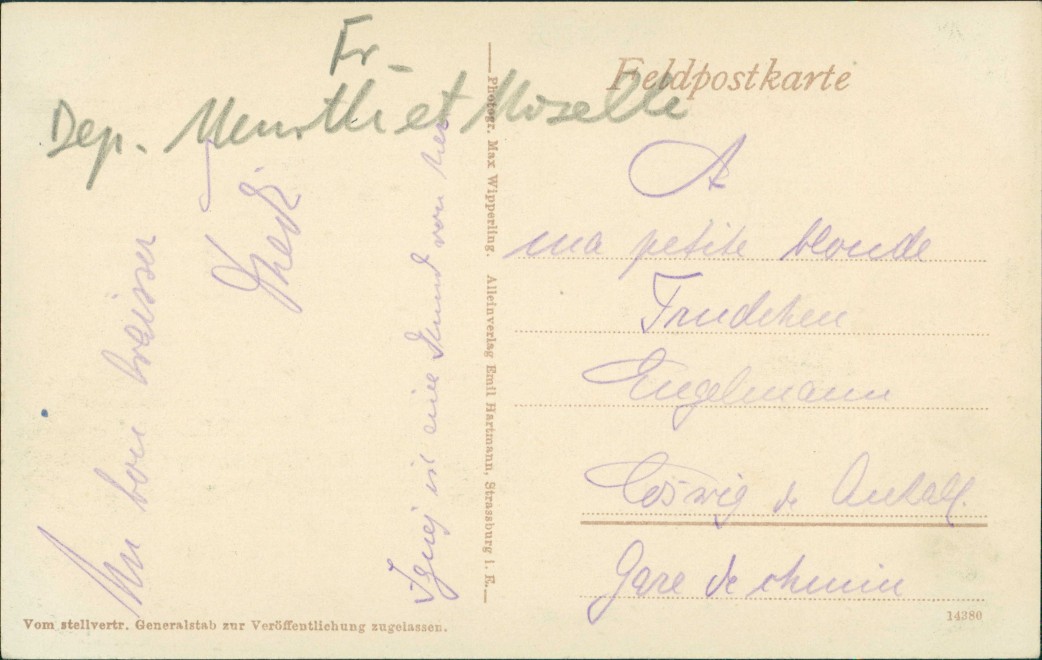 Fr.
Dep. Meurth et Moselle
Feldpostkarte
Un bon baiser
ist eine Stund von hier
Photogr. Max Wipperling. Alleinverlag Emil Hartmann, Strassburg i. E.
A
ma petite blonde
Trudchen
Engelmann
Coswig de Anhalt.
Gare de chemin
Vom stellvertr. Generalstab zur Veröffentlichung zugelassen.
14380